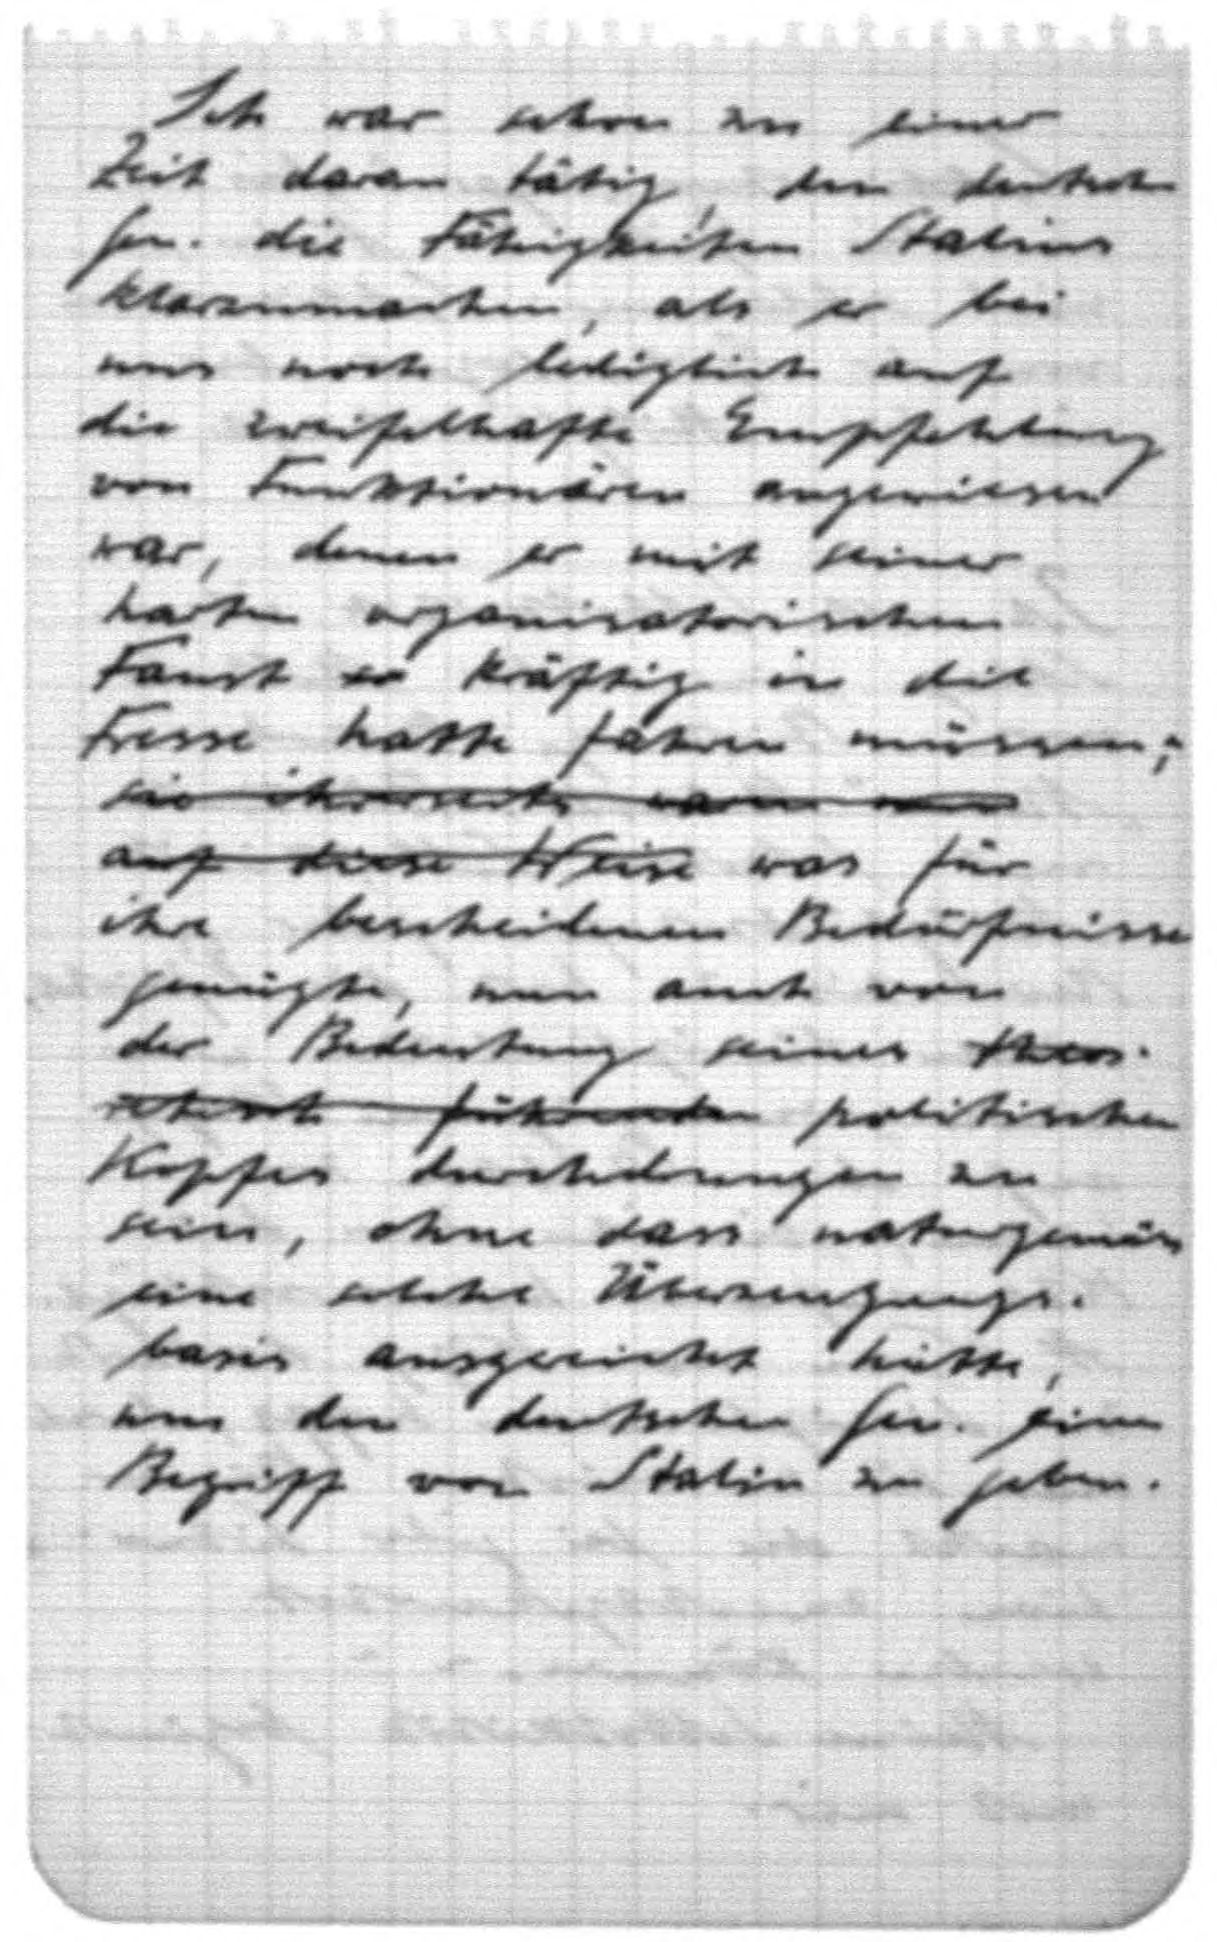 Ich war schon zu einer
Zeit daran tätig, den deutschen
Gen. die Fähigkeiten Stalins
klarzumachen, als er bei
uns noch lediglich auf
die zweifelhafte Empfehlung
von Funktionären angewiesen
war, denen er mit seiner
harten organisatorischen
Faust so kräftig in die
Fresse hatte fahren müssen,
sie ihrerseits waren
auf diese Weise was für
ihre bescheidenen Bedürfnisse
genügte, nun auch von
der Bedeutung seines theo-
retisch führenden politischen
Kopfes durchdrungen zu
sein, ohne dass naturgemäss
eine solche Überzeugungs-
basis ausgereicht hätte,
uns den deutschen Gen. einen
Begriff von Stalin zu geben.